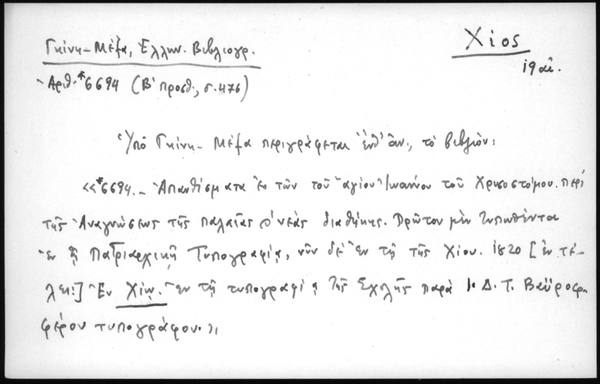 Γκίνη-Μέξα, Ἑλλην. Βιβλιογρ.
Χίος
Ἀριθ. *6694 (Β' προσθ., σ. 476)
19 αἰ.
Ὑπὸ Γκίνη-Μέξα περιγράφεται ἐνθ' ἀν., τὸ βιβλίον:
«*6694.- Ἀπανθίσματα ἐκ τῶν τοῦ ἁγίου Ἰωάννου τοῦ Χρυσοστόμου. Περὶ
τῆς Ἀναγνώσεως τῆς παλαιᾶς νέας διαθήκης. Πρῶτον μὲν τυπωθέντα
ἐν τῇ Πατριαρχικῇ Τυπογραφίᾳ, νῦν δὲ ἐν τῇ τῆς Χίου. 1820 [ἐν τέ-
λει:] Ἐν Χίῳ. Ἐν τῇ τυπογραφίᾳ τῆς Σχολῆς παρὰ Δ. Τ. Βαϋροφ-
φέρου τυπογράφου.»